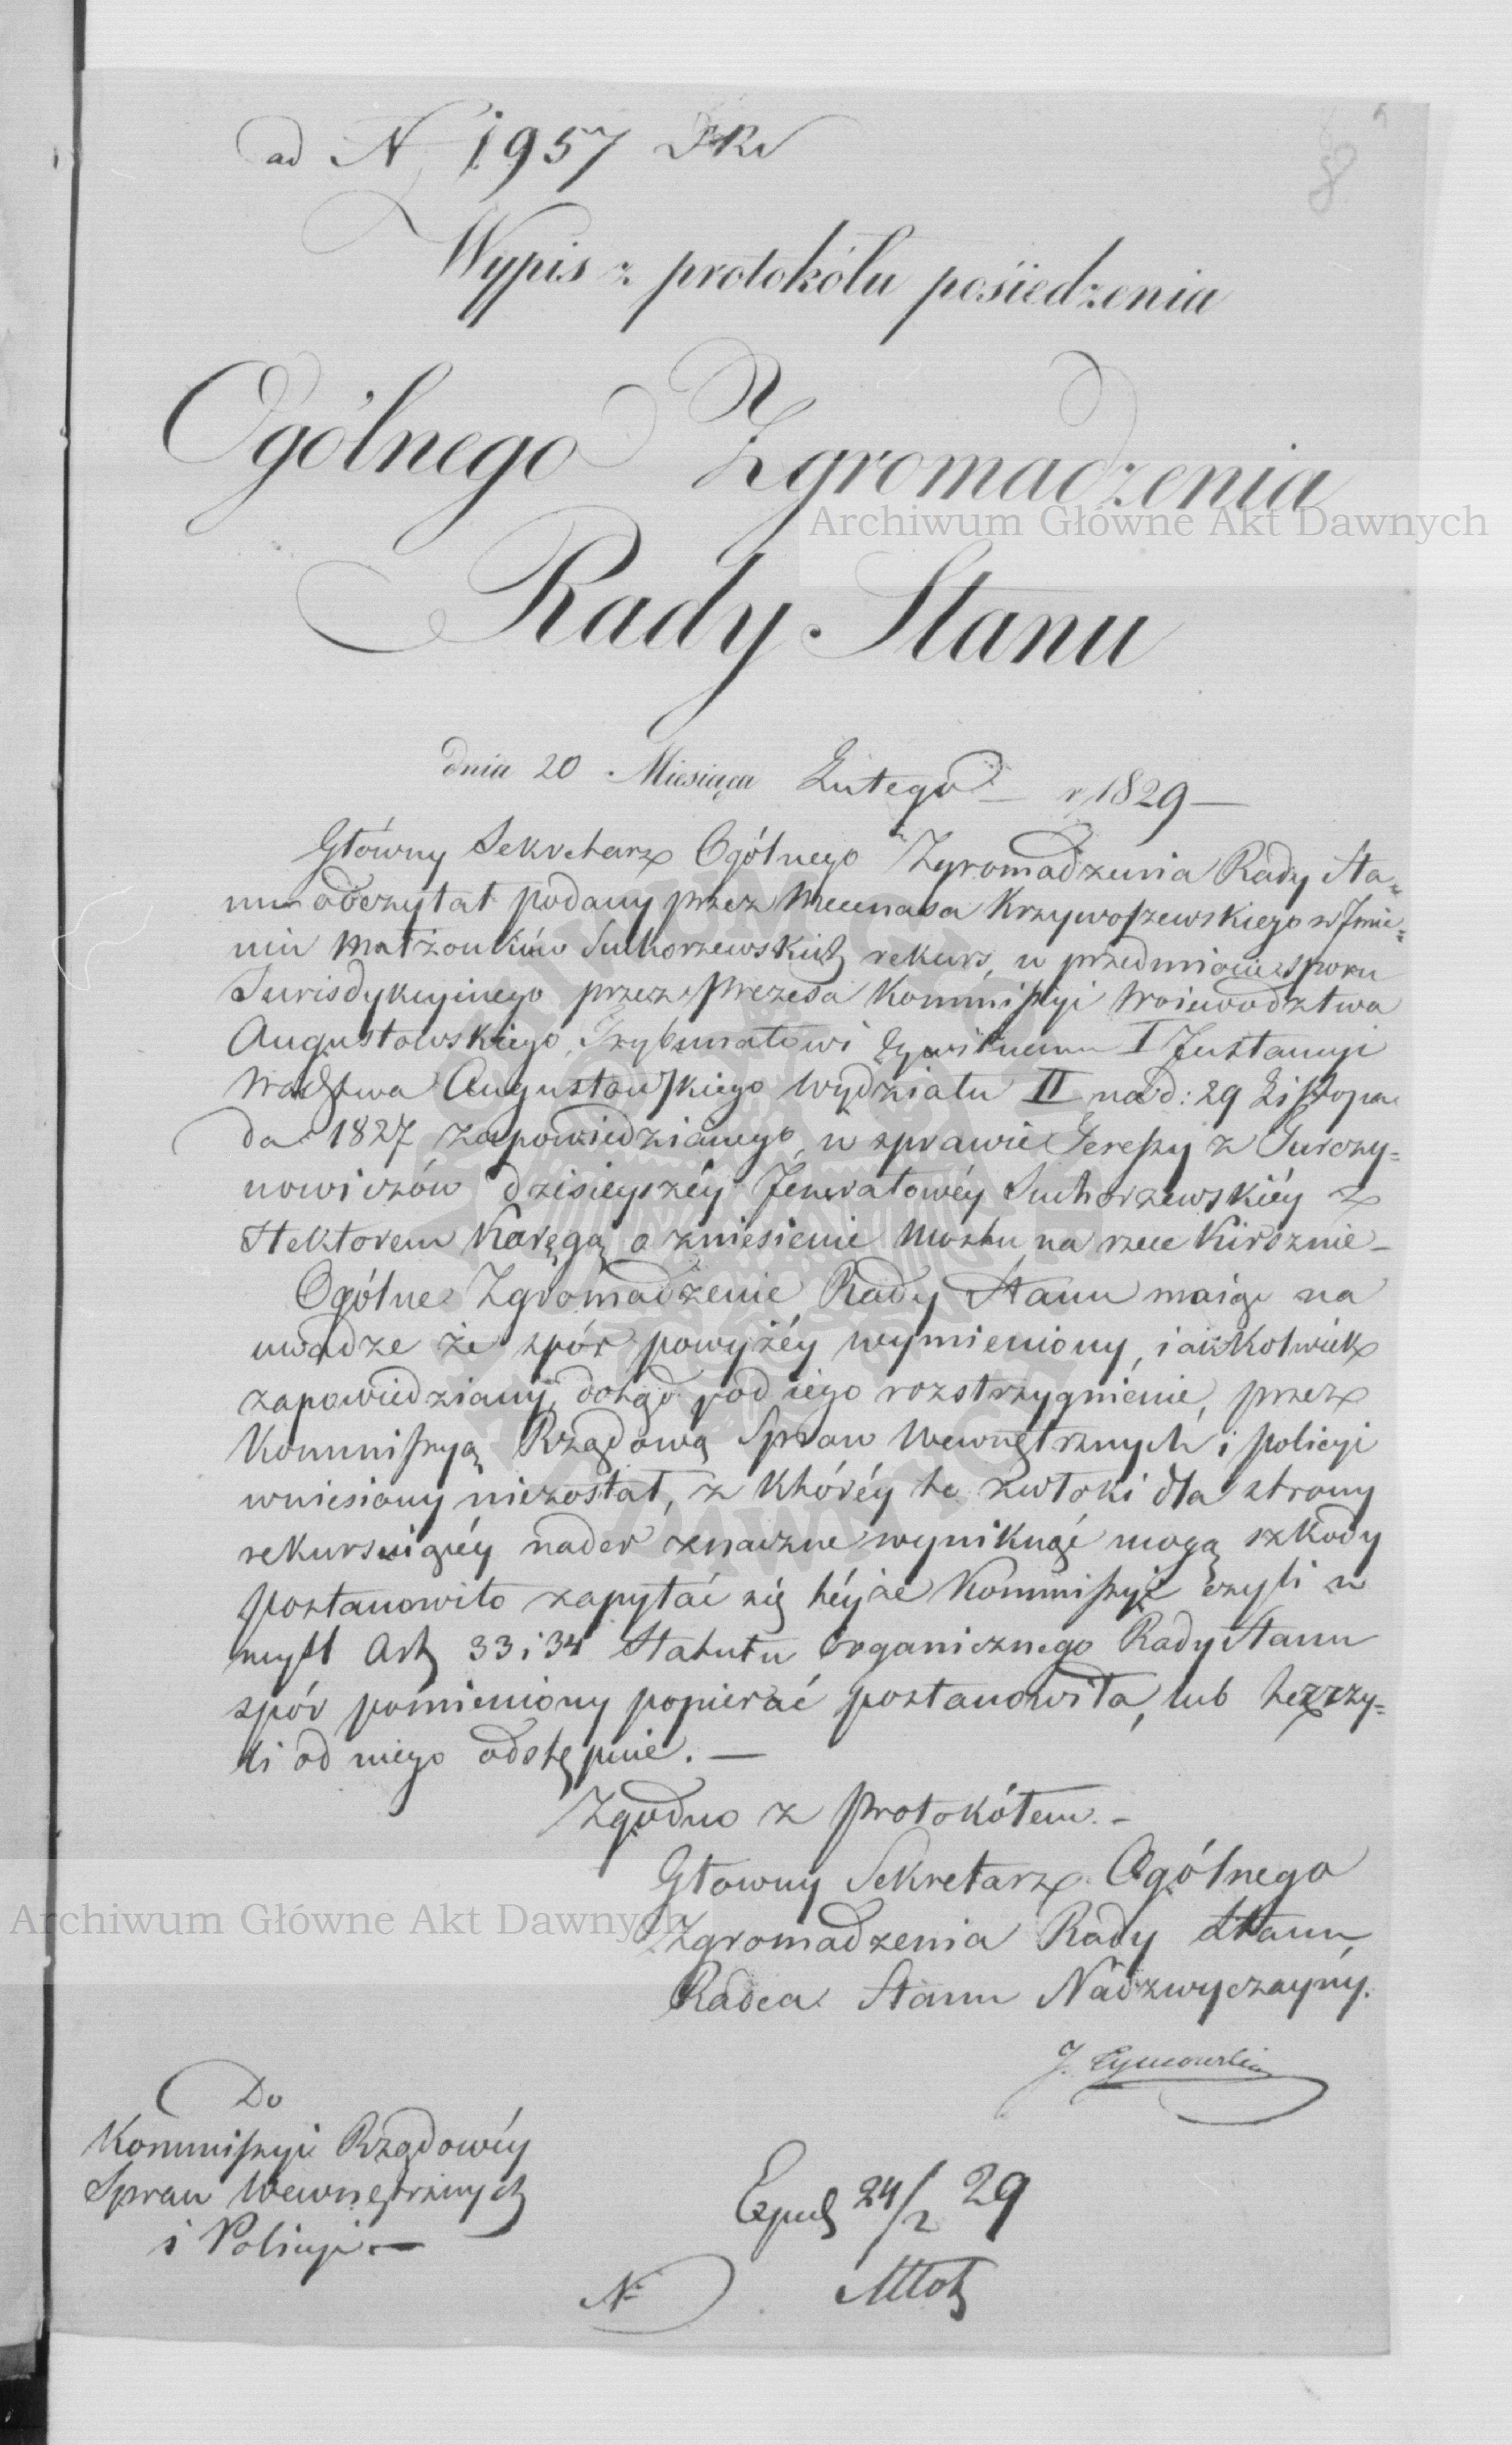 ad N 1957
8
Wypis z protokólu posiedzenia
Ogólnego Zgromadzenia
Rady Stanu
dnia 20 Miesiąca Lutego r. 1829 —
Główny Sekretarz Ogólnego Zgromadzenia Rady Sta=
nu odczytał podany przez Mecenasa Krzywoszewskiego w Jmie=
niu Małżonków Suchorzewskich rekurs, w przedmiocie sporu
Jurisdykcyinego przez Prezesa Kommissyi Woiewodztwa
Augustowskiego, Trybunałowi Cywilnemu I Jnstancyi
Wodztwa Augustowskiego Wydziału II na d: 29 Listopa
da 1827 zapowiedzianego, w sprawie Teressy z Turczy=
nowiczów dzisieyszéy Jenerałowéy Suchorzewskiéy z
Hektorem Karęgą o zniesienie Mostu na rzece Kirsznie —
Ogólne Zgromadzenie Rady Stanu maiąc na
uwadze że spór powyżéy wymieniony, iakkolwiek
zapowiedziany, dotąd pod iego rozstrzygnienie, przez
Kommissyą Rządową Spraw Wewnętrznych i Policyi
wniesiony niezostał, z któréy to zwłoki dla strony
rekursuiącéy nader znaczne wyniknąć mogą szkody
postanowiło zapytać się téyże Kommissyi czyli w
myśl Art 33 i 34 Statutu Organicznego Rady Stanu
spór pomieniony popierać postanowiła, lub też czy=
li od niego odstępuie. —
Zgodno z Protokółem. —
Głowny Sekretarz Ogólnego
Zgromadzenia Rady Stanu,
Radca Stanu Nadzwyczayny.
J. Tymowski
Do
Kommissyi Rządowéy
Spraw Wewnętrznych
i Policyi —
Exped 24/2 29
N:
Archiwum Główne Akt Dawnych
Archiwum Główne Akt Dawnych